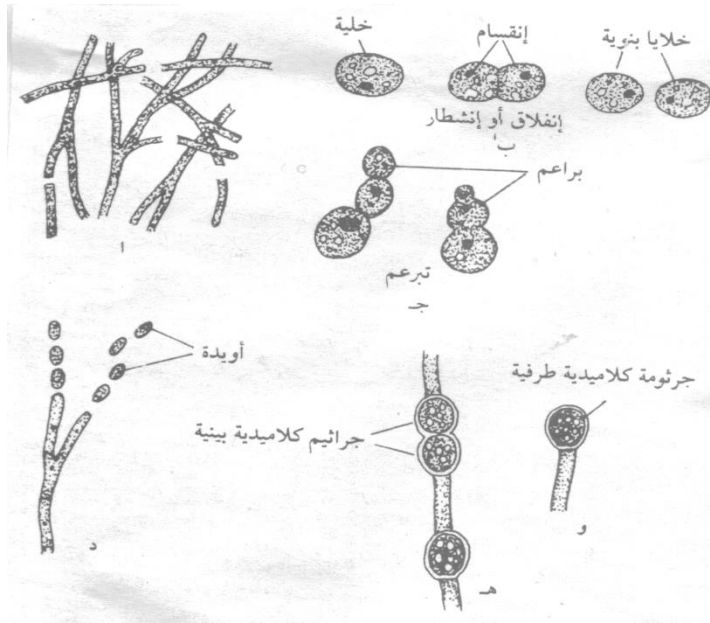 خلية
إنقسام
خلايا بنوية
إنفلاق أو إنشطار
ب
براعم
ا
تبرعم
جـ
أويدة
جرثومة كلاميدية طرفية
جراثيم كلاميدية بينية
و
د
هـ